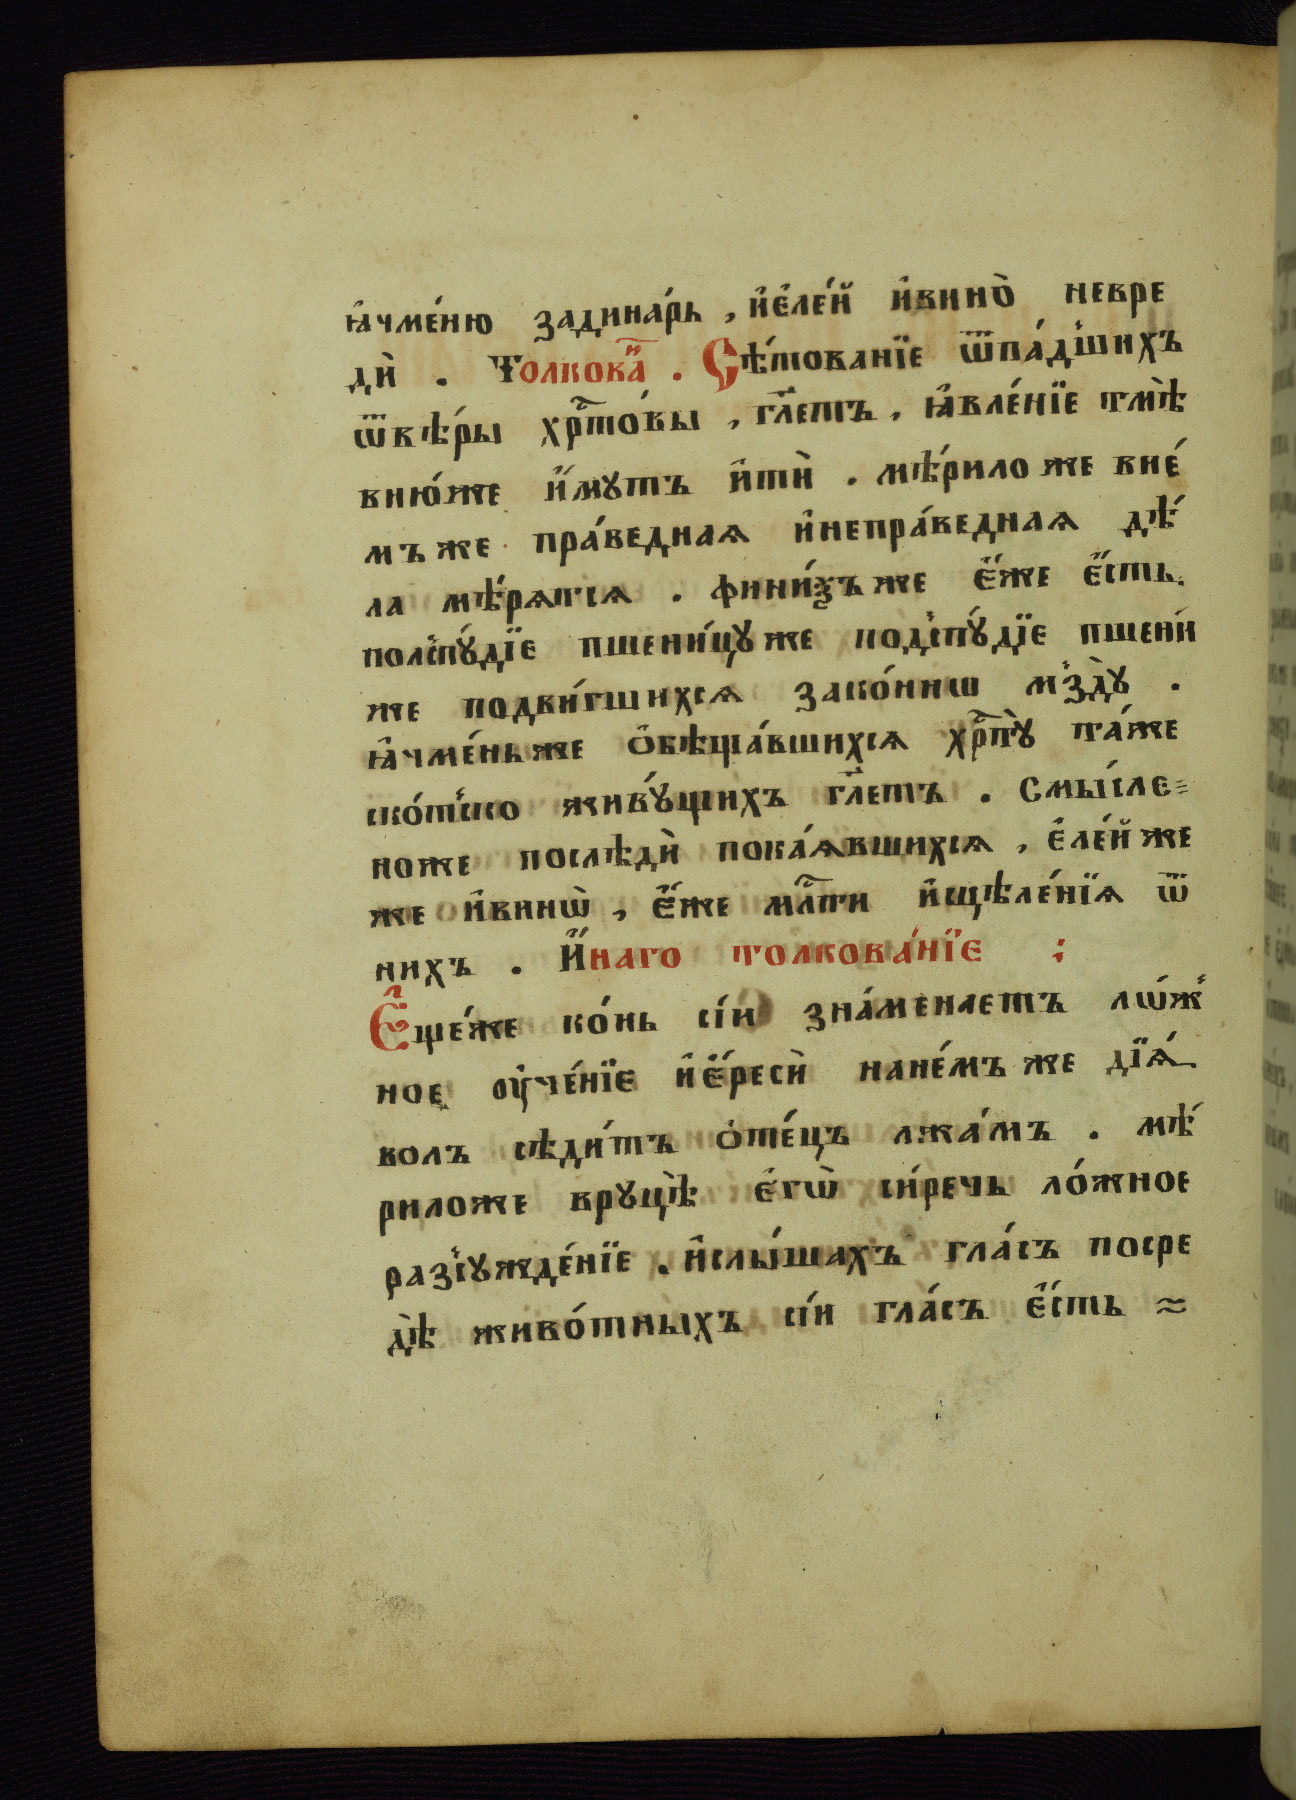 ꙗ҆чме́ню задина́рь , и҆є҆ле́й и҆вино̀ невре
дѝ . Толкова́ⷩ҇ . Сѣ́тованїе ѿпа́дшихъ
ѿвѣ́ры хрⷭ҇то́вы , гл҃етъ , ꙗ҆вле́нїе тмѣ̀
вню́же и҆́мꙋтъ и҆тѝ . мѣ́рило же вне́
мъ же пра́веднаѧ и҆непра́веднаѧ дѣ́
ла мѣ́рѧтсѧ . фини́ѯъ же є҆́же є҆́сть.
полспꙋ́дїе пшени́цꙋ же подспꙋ́дїе пшени́
же подви́гшихсѧ зако́ннѡ мздꙋ̀ .
ꙗ҆чме́нь же ѻ҆бѣща́вшихсѧ хрⷭ҇тꙋ̀ та́же
ско́тско живꙋ́щихъ гл҃етъ . смы́сле
ноже послѣдѝ пока́ѧвшихсѧ , є҆ле́й же
же и҆винѡ̀ , є҆́же млⷭ҇ти и҆щѣле́нїѧ ѿ
нихъ . И҆́наго толкова́нїе ;
Є҆ще́же ко́нь сі́и зна́менаетъ лѡ́ж
ное ᲂу҆че́нїе и҆є҆́ресѝ нане́мъ же дїѧ́
волъ сѣди́тъ ѻ҆те́цъ лжа́мъ . мѣ́
риложе врꙋцѣ̀ є҆гѡ̀ си́речь ло́жное
разсꙋжде́нїе . и҆слы́шахъ гла́съ посре
дѣ̀ живо́тныхъ сі́и гла́съ є҆́сть ≈